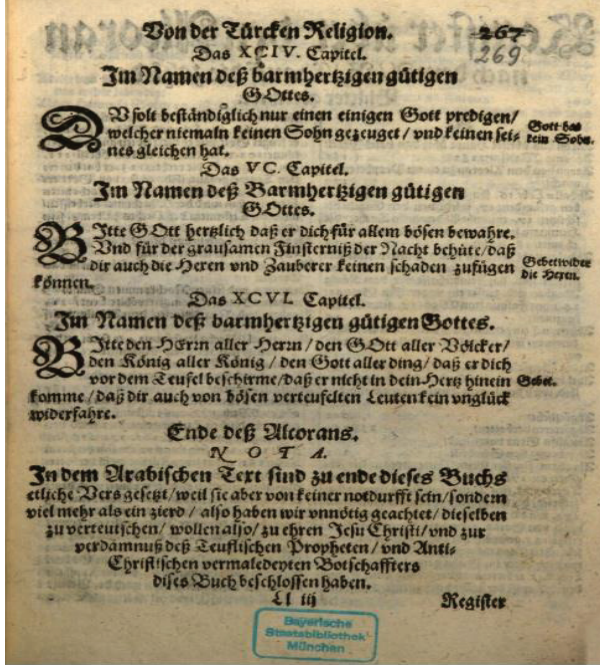 Von der Türcken Religion.
267
269
Das XCIV. Capitel.
Im Namen deß barmhertzigen gütigen
GOttes.
DU solt beständiglich nur einen einigen Gott predigen/
welcher niemaln keinen Sohn gezeuget / vnd keinen sei-
nes gleichen hat.
Gott hat
kein Sohn.
Das VC. Capitel.
Im Namen deß Barmhertzigen gütigen
GOttes.
BItte GOtt hertzlich daß er dich für allem bösen bewahre.
Vnd für der grausamen Finsterniß der Nacht behüte/daß
dir auch die Hexen vnd Zauberer keinen schaden zufügen
können.
Gebet wider
die Hexen.
Das XCVI. Capitel.
Im Namen deß barmhertzigen gütigen Gottes.
BItte den HErrn aller Herrn / den GOtt aller Völcker/
den König aller König / den Gott aller ding/ daß er dich
vor dem Teufel beschirme/daß er nicht in dein Hertz hinein
komme/daß dir auch von bösen verteufelten Leuten kein vnglück
widerfahre.
Gebet.
Ende deß Alcorans.
NOTA.
In dem Arabischen Text sind zu ende dieses Buchs
etliche Vers gesetzt/weil sie aber von keiner notdurfft sein/sondern
viel mehr als ein zierd / also haben wir vnnötig geachtet/dieselben
zu verteutschen/ wollen also/ zu ehren Jesu Christi/vnd zur
verdamnuß deß Teuflischen Propheten/ vnd Anti-
Christischen vermaledeyten Botschaffters
dises Buch beschlossen haben.
Ll iij
Register
Bayerische
Staatsbibliothek
München